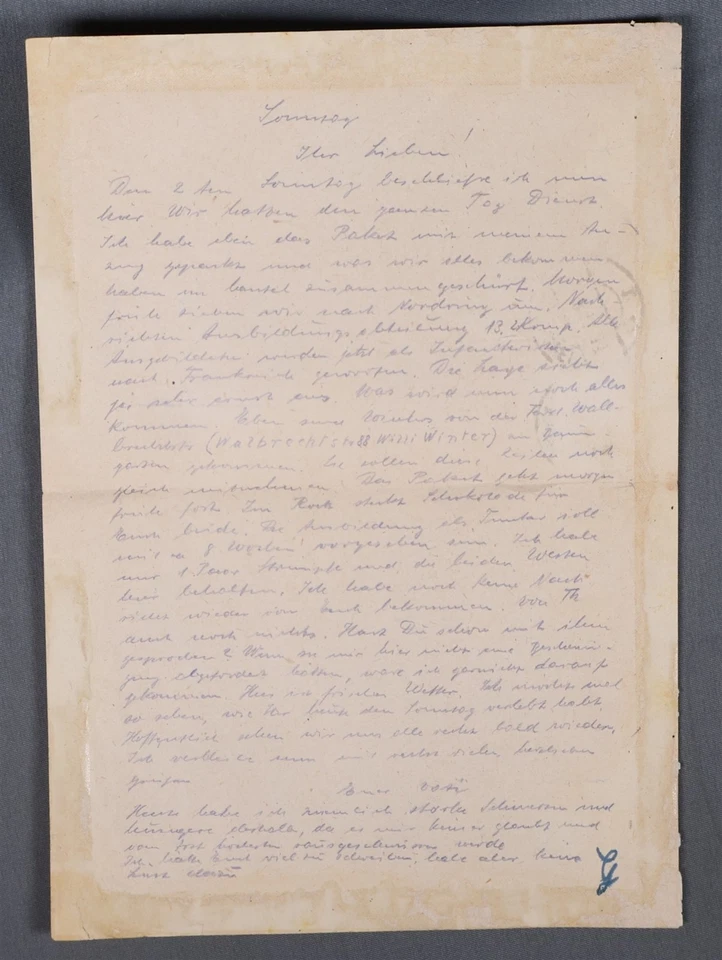 Sonntag
Ihr Lieben!
Den 2 ten Sonntag beschließe ich nun
hier Wir hatten den ganzen Tag Dienst.
Ich habe eben das Paket mit meinem An-
zug gepackt und was wir alles bekommen
haben im zusammengeschürt. Morgen
früh ziehen wir nach Nordring um. Nach-
richten Ausbildungs abteilung 13. 2 Komp. Alle
Ausgebildeten werden jetzt als Infanteristen
nach Frankreich geworfen. Die Lage sieht
ja sehr ernst aus. Was wird nun noch alles
kommen. Eben sind Winters von der
(Walbrechtstr 88 Willi Winter) am
garten gekommen. Sie sollen diese Zeilen noch
gleich mitnehmen. Das Paket geht morgen
früh fort. Im Rock steckt Schokolade für
Euch beide. Die Ausbildung als Funker soll
mit 8 Wochen vorgesehen sein. Ich habe
nur 1 Paar Strümpfe und die beiden Westen
hier behalten. Ich habe noch keine Nach-
richt wieder von Euch bekommen. Von Th
auch noch nichts. Hast Du schon mit ihm
gesprochen? Wenn sie mir hier nicht eine
abgefordert hätten, wäre ich garnicht darauf
gekommen. Hier ist frisches Wetter. Ich möchte mal
so sehen, wie Ihr heute den Sonntag verlebt habt.
Hoffentlich sehen wir uns alle recht bald wieder.
Ich verbleibe nun mit recht vielen herzlichen
Grüßen
Euer Vati
Heute habe ich ziemlich starke Schmerzen und
deshalb, da es mir keiner glaubt und
vom Arzt höchstens rausgeschmissen würde
Ich hätte Euch viel zu schreiben, habe aber keine
Lust dazu